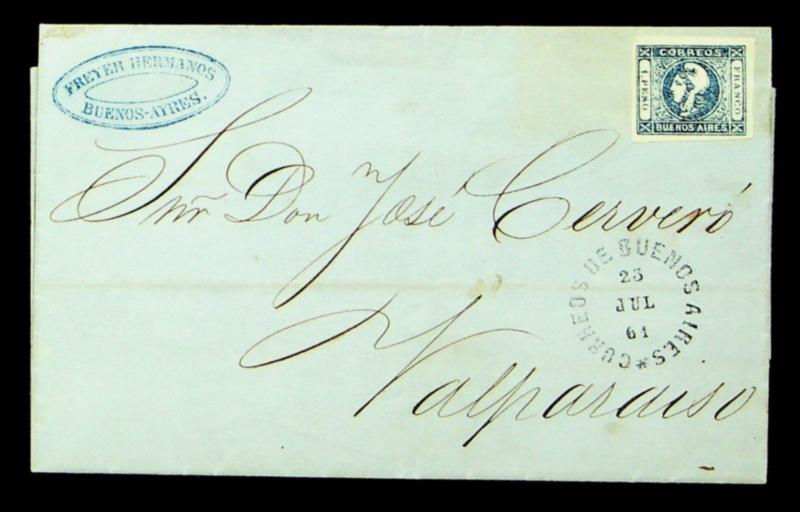 FREYER HERMANOS
BUENOS-AYRES.
CORREOS.
1 PESO
FRANCO
BUENOS AIRES
Sñr Don José Cerveró
CORREOS DE BUENOS AIRES*
23
JUL
61
Valparaiso